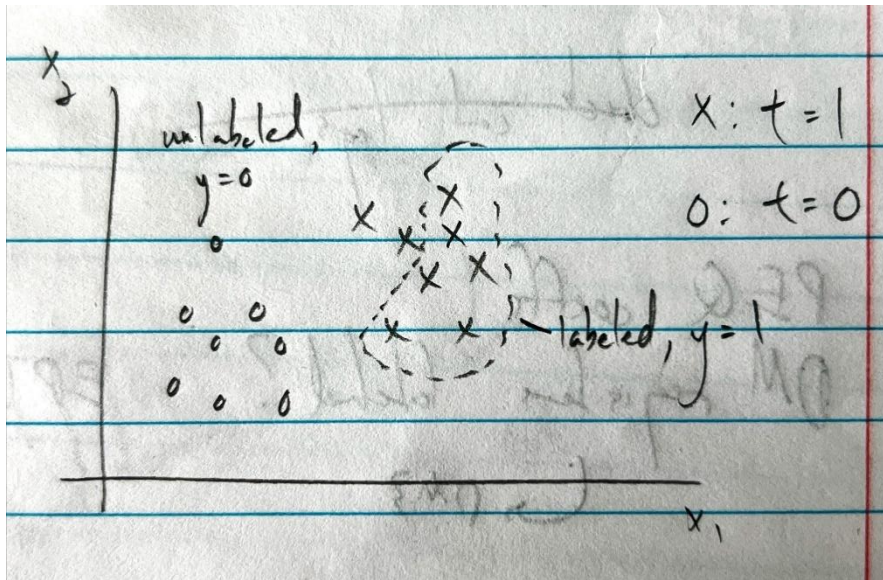 x₂
unlabeled,
y=0
x: t=1
0: t=0
labeled, y=1
x₁